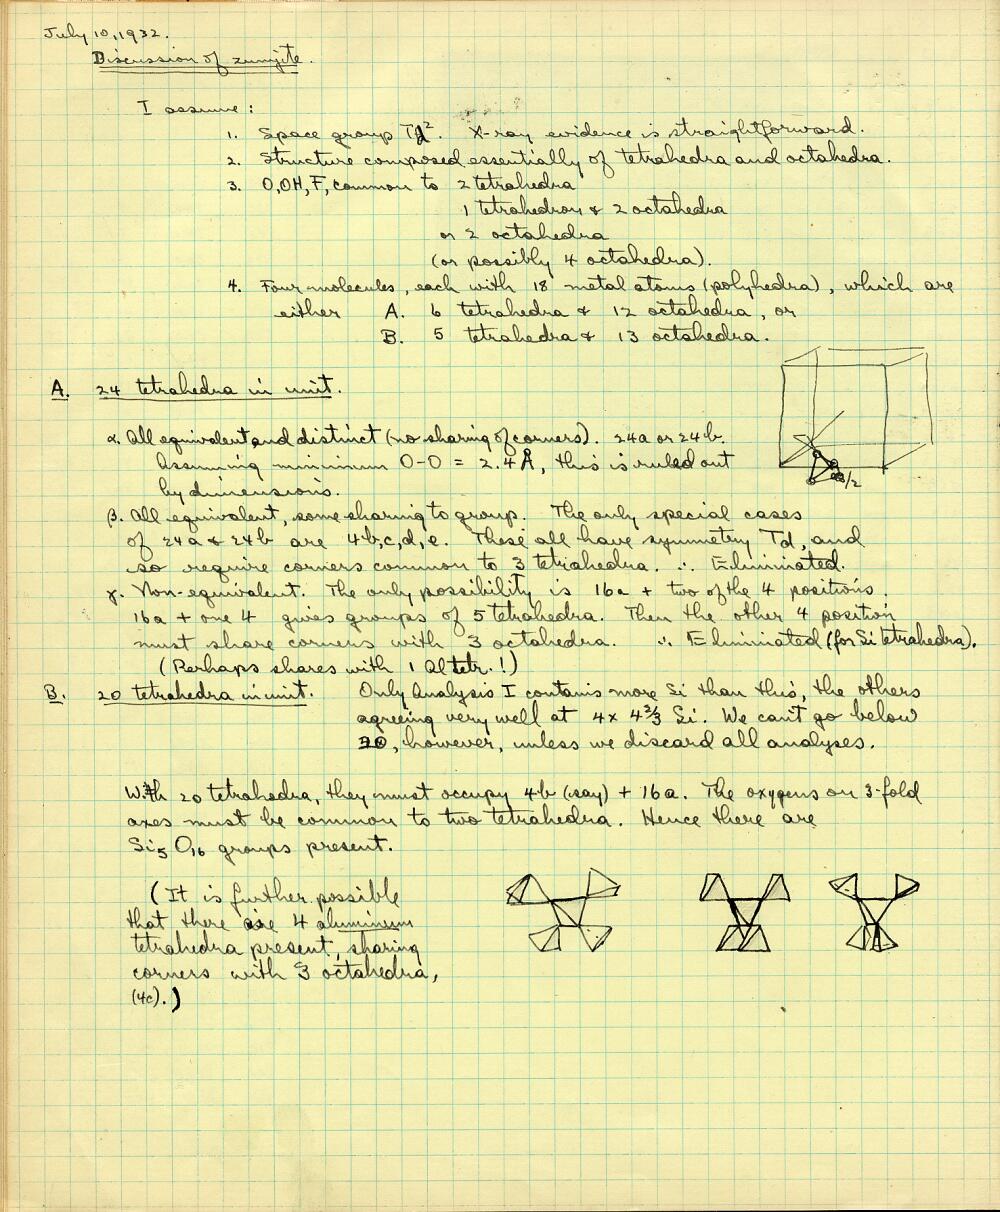 July 10, 1932.
Discussion of zunyite.
I assume:
1. Space group Td². X-ray evidence is straightforward.
2. Structure composed essentially of tetrahedra and octahedra.
3. O, OH, F, common to 2 tetrahedra
1 tetrahedron & 2 octahedra
or 2 octahedra
(or possibly 4 octahedra).
4. Four molecules, each with 18 metal atoms (polyhedra), which are
either A. 6 tetrahedra & 12 octahedra, or
B. 5 tetrahedra & 13 octahedra.
A. 24 tetrahedra in unit.
α. All equivalent and distinct (no sharing of corners). 24a or 24b.
Assuming minimum O-O = 2.4Å, this is ruled out
by dimensions.
β. All equivalent, some sharing to group. The only special cases
of 24a & 24b are 4b,c,d,e. These all have symmetry Td, and
so require corners common to 3 tetrahedra. ∴ Eliminated.
γ. Non-equivalent. The only possibility is 16a + two of the 4 positions.
16a + one 4 gives groups of 5 tetrahedra. Then the other 4 position
must share corners with 3 octahedra. ∴ Eliminated (for Si tetrahedra).
(Perhaps shares with 1 Al tetr.!)
B. 20 tetrahedra in unit. Only Analysis I contains more Si than this, the others
agreeing very well at 4 x 4 2/3 Si. We can't go below
20, however, unless we discard all analyses.
With 20 tetrahedra, they must occupy 4b (say) + 16a. The oxygens on 3-fold
axes must be common to two tetrahedra. Hence there are
Si5O16 groups present.
(It is further possible
that there are 4 aluminum
tetrahedra present, sharing
corners with 3 octahedra,
(4c).)